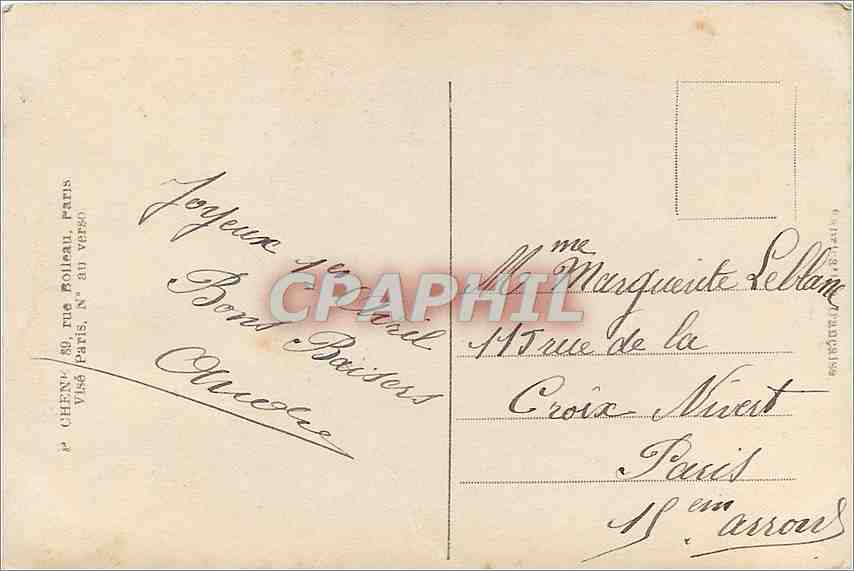 CHENE 89, rue Boileau, Paris
Visé Paris, N° au verso
Joyeux 1er Avril
Bons Baisers
André
CPAPHIL
Mme Marguerite Leblanc
115 rue de la
Croix Nivert
Paris
15em arrond
française